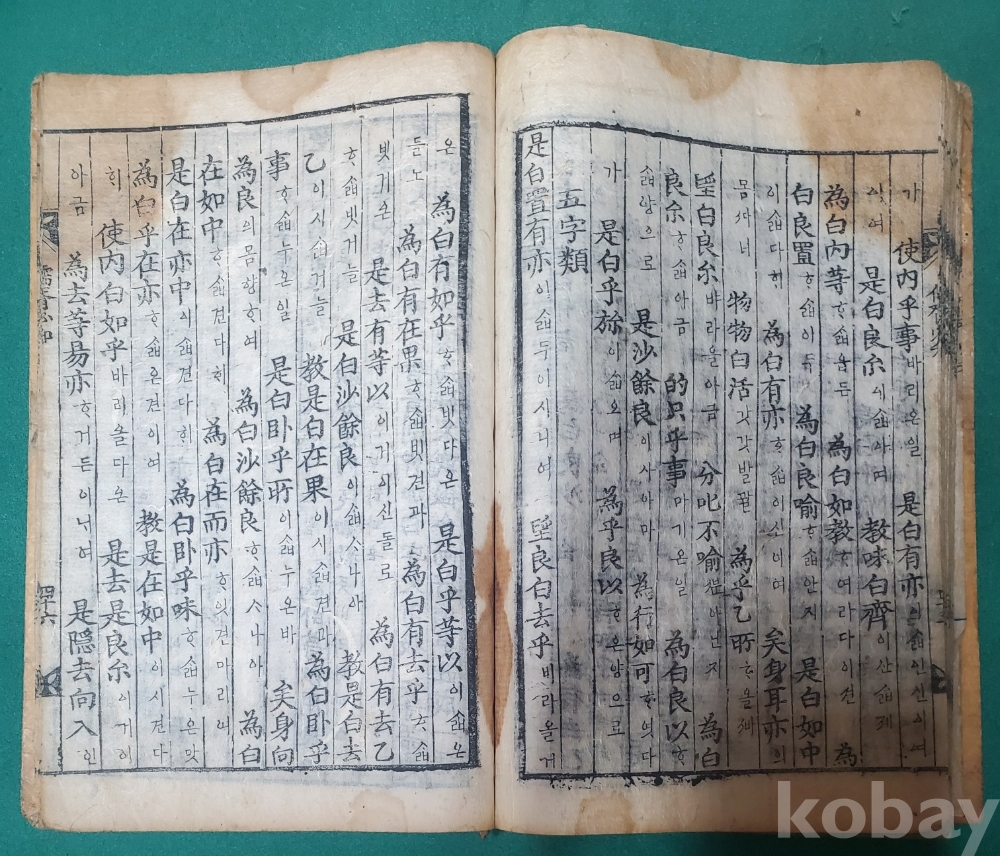 가 使內乎事 바리온일 是白有亦 이ᄉᆞᆲ인신이여
이여 是白良尒 이ᄉᆞᆲ아며 敎味白齊 이산ᄉᆞᆲ제
為白內等 ᄒᆞᄉᆞᆲᄂᆞ든 為白如敎 ᄒᆞ여라다이션 為
白良置 ᄒᆞᄉᆞᆲ아두 為白良喻 ᄒᆞᄉᆞᆲ안지 是白如中
이ᄉᆞᆲ다ᄒᆡ 為白有亦 ᄒᆞᄉᆞᆲ이신이여 矣身耳亦 의
몸ᄯᆞ녀 物物白活 갓갓발괄 為乎乙所 ᄒᆞ올제
望白良尒 ᄇᆞ라올아금 分叱不喻 ᄲᅮᆫ아닌지 為白
良尒 ᄒᆞᄉᆞᆲ아금 的只乎事 마기온일 為白良以 ᄒᆞ
ᄉᆞᆲ앙으로 是沙餘良 이사아마 為行如可 ᄒᆞ엿다
가 是白乎旀 이ᄉᆞᆲ오며 為乎良以 ᄒᆞ온앙으로
五字類
是白置有亦 이ᄉᆞᆲ두이시니여 望良白去乎 바라올거
온 為白有如乎 ᄒᆞᄉᆞᆲ빗다온 是白乎等以 이ᄉᆞᆲ온
들노 為白有在果 ᄒᆞᄉᆞᆲ빗견과 為白有去乎 ᄒᆞᄉᆞᆲ
빗기온 是去有等以 이거이신들로 為白有去乙
ᄒᆞᄉᆞᆲ빗거늘 是白沙餘良 이ᄉᆞᆲᄉᆞ나아 敎是白去
乙 이시ᄉᆞᆲ거늘 敎是白在果 이시ᄉᆞᆲ견과 為白卧乎
事 ᄒᆞᄉᆞᆲ누온일 是白卧乎所 이ᄉᆞᆲ누온바 矣身向
為良 의몸향ᄒᆞ여 為白沙餘良 ᄒᆞᄉᆞᆲᄉᆞ나아 為白
在如中 ᄒᆞᄉᆞᆲ견다ᄒᆡ 為白在而亦 ᄒᆞ잇견마리여
是白在亦中 이ᄉᆞᆲ견다ᄒᆡ 為白卧乎味 ᄒᆞᄉᆞᆲ누온맛
為白乎在亦 ᄒᆞᄉᆞᆲ온견이여 敎是在如中 이시견다
ᄒᆡ 使內白如乎 바리ᄋᆞᆲ다온 是去是良尒 이거이
아금 為去等易亦 ᄒᆞ거든이닉여 是隱去向入 인
儒胥必知
四十六
kobay